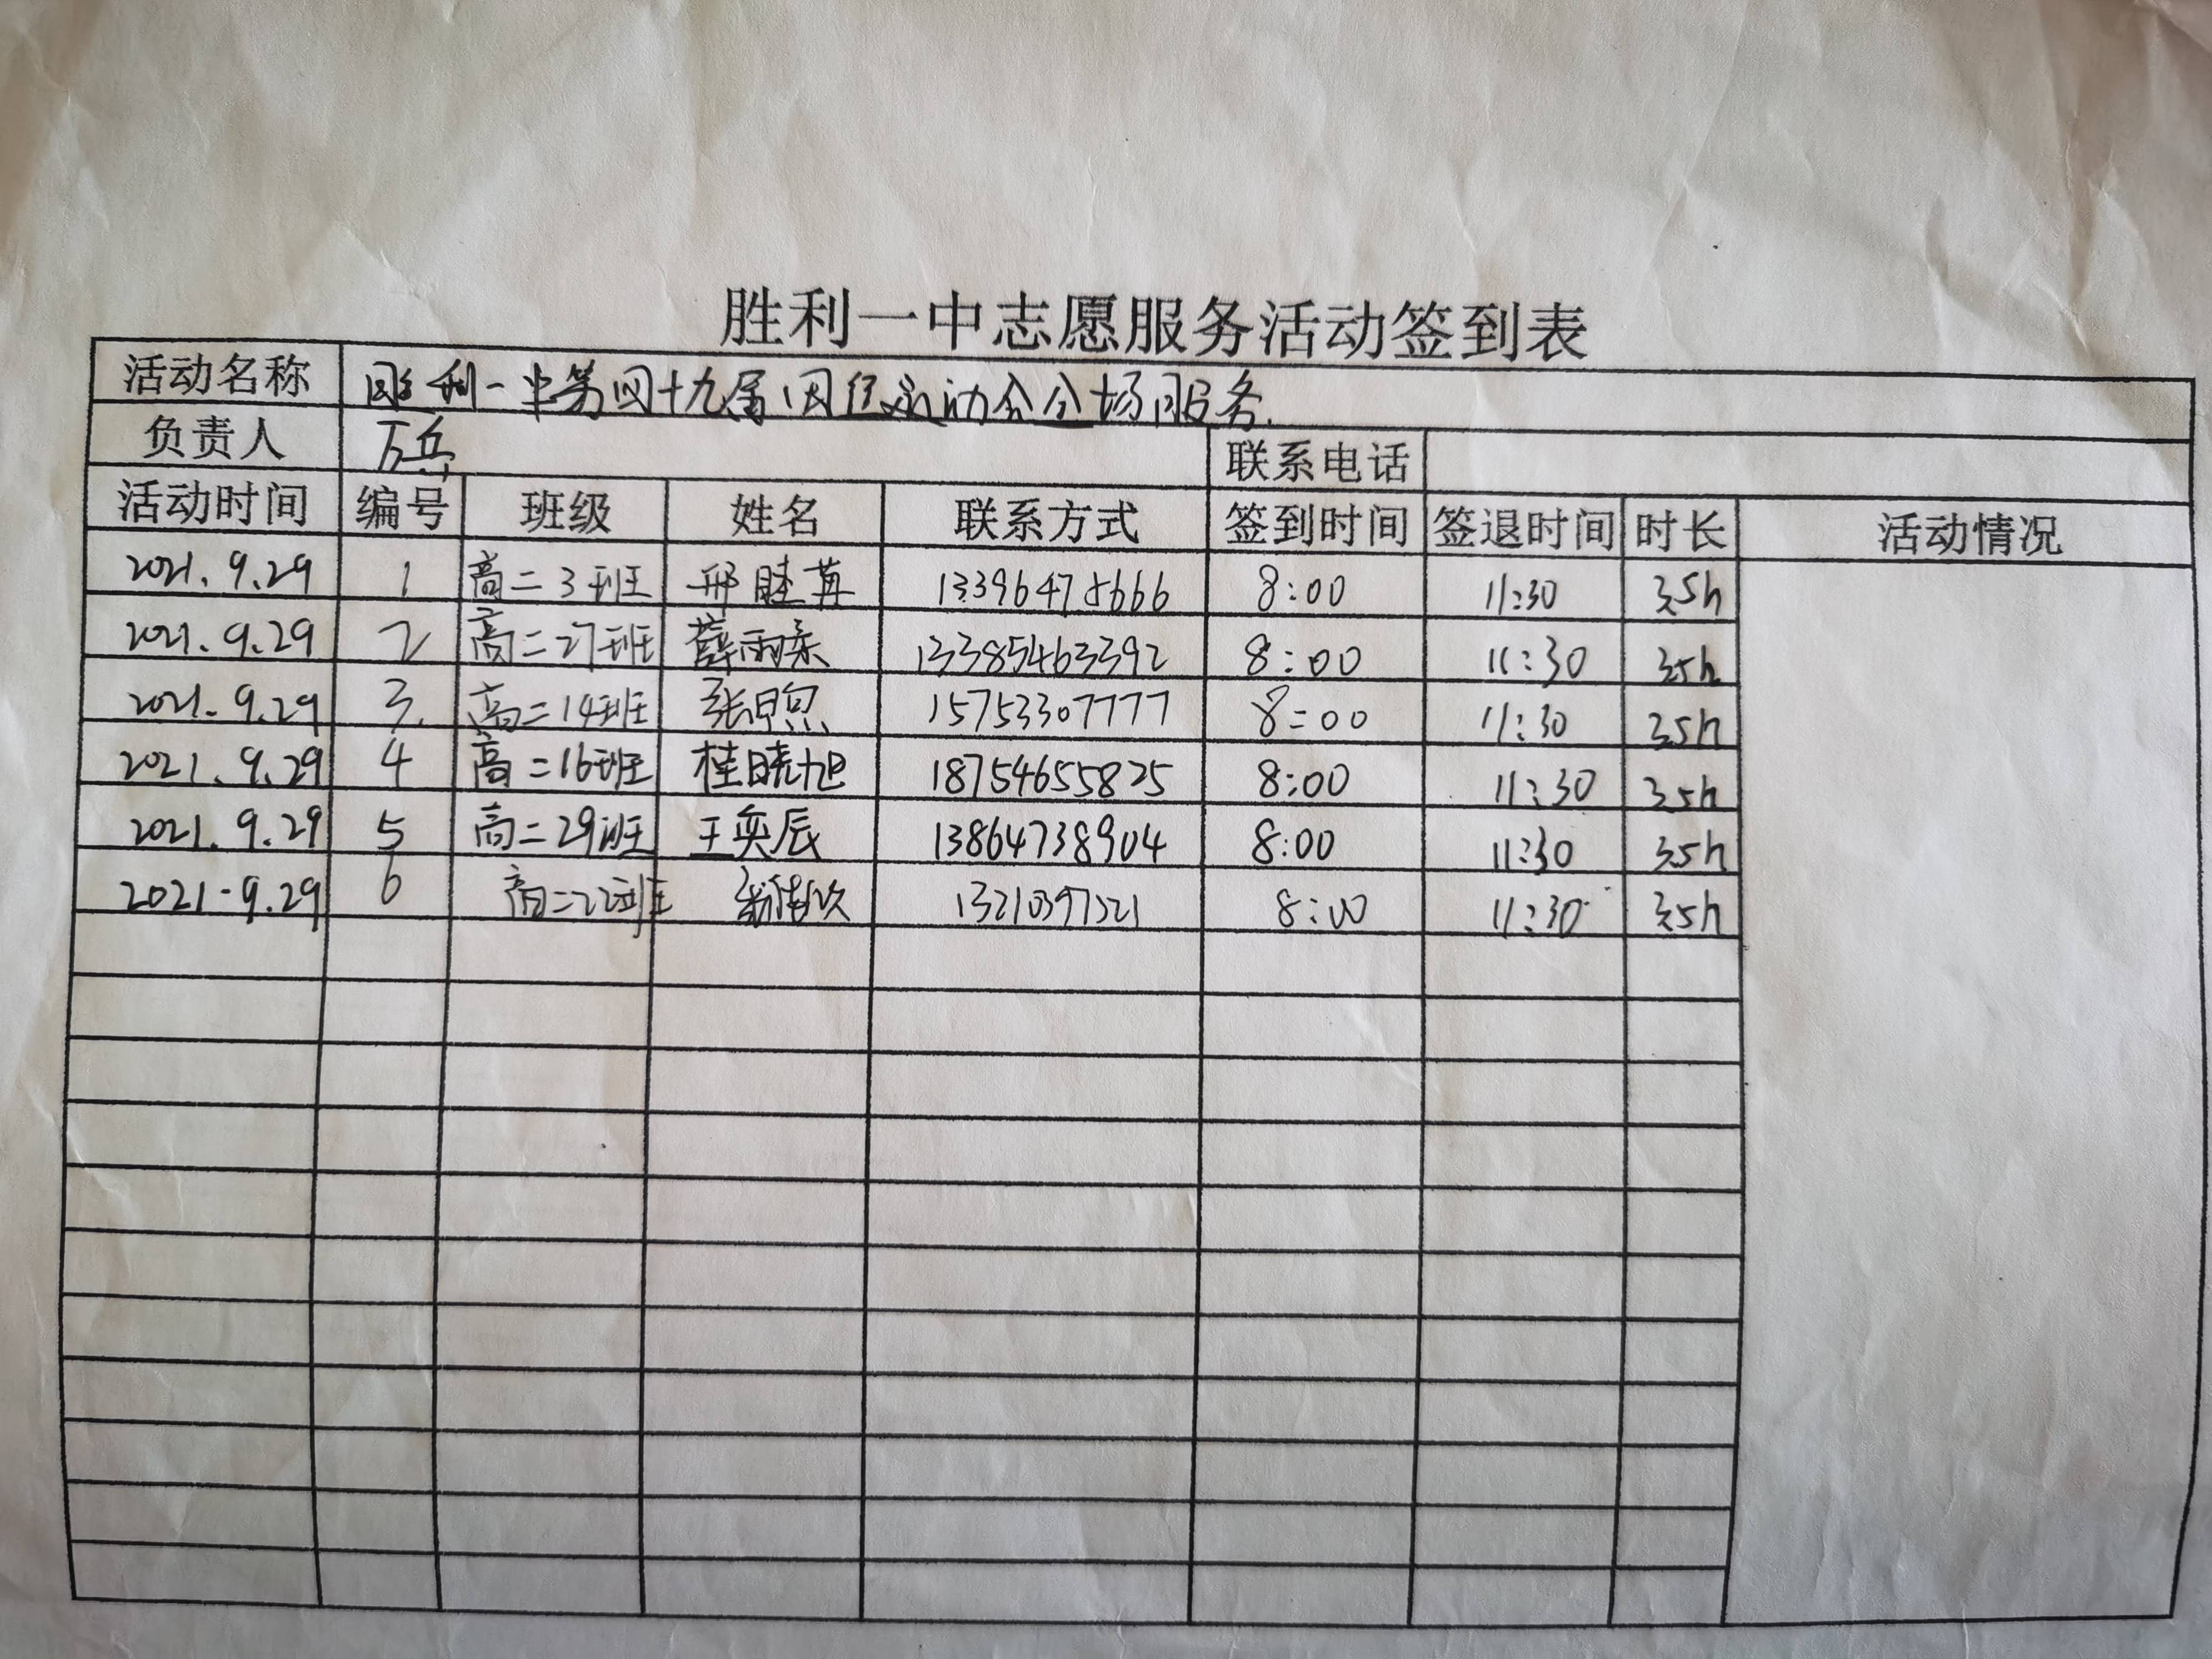 胜利一中志愿服务活动签到表
活动名称 胜利一中第四十九届田径运动会会场服务.
负责人 万兵 联系电话
活动时间 编号 班级 姓名 联系方式 签到时间 签退时间 时长 活动情况
2021.9.29 1 高二3班 邢睦苒 13396475666 8:00 11:30 3.5h
2021.9.29 2 高二27班 薛雨柔 13385463392 8:00 11:30 3.5h
2021.9.29 3. 高二14班 张 15753307777 8:00 11:30 3.5h
2021.9.29 4 高二16班 桂晓旭 18754655825 8:00 11:30 3.5h
2021.9.29 5 高二29班 王奕辰 13864738904 8:00 11:30 3.5h
2021.9.29 6 高二22班 8:00 11:30 3.5h